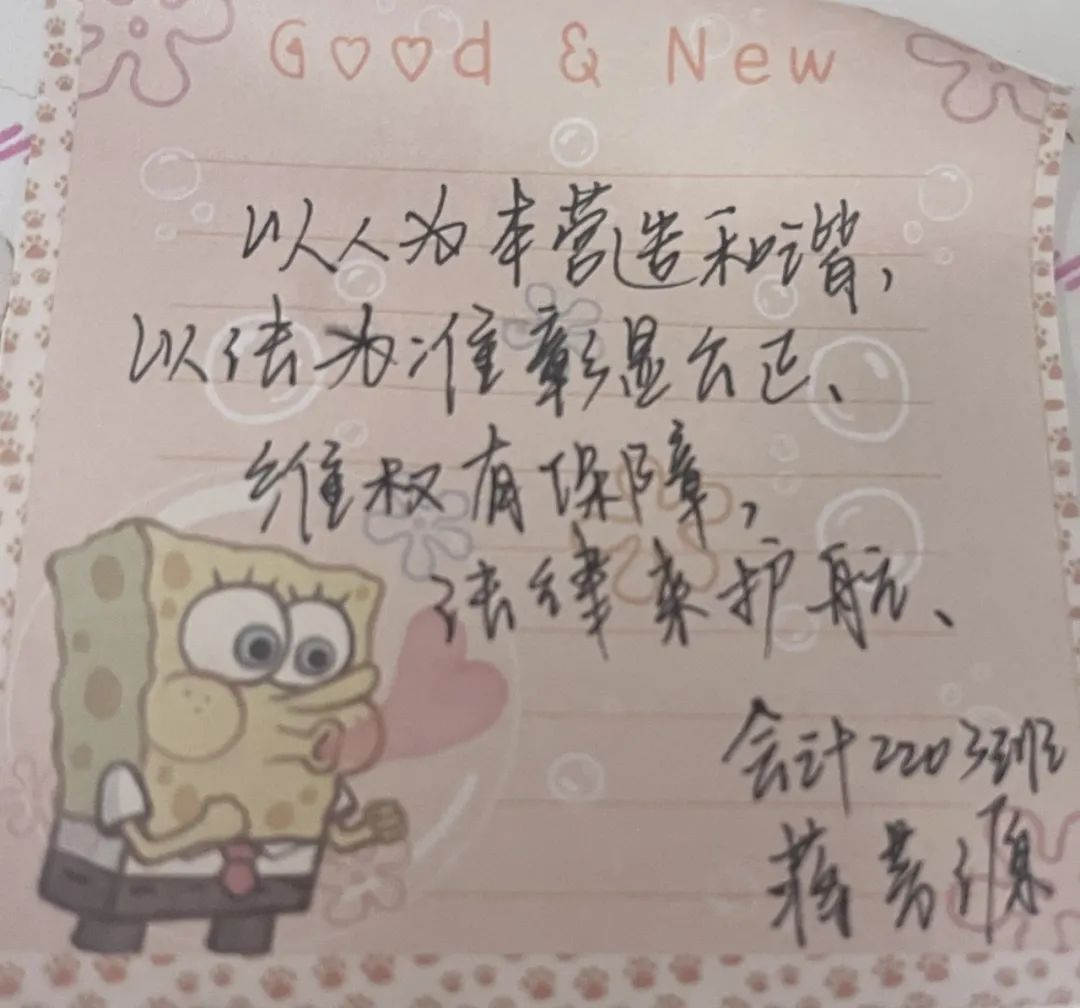 Good & New
以人为本营造和谐,
以法为准彰显公正、
维权有保障,
法律来护航、
会计2203班
蒋 源